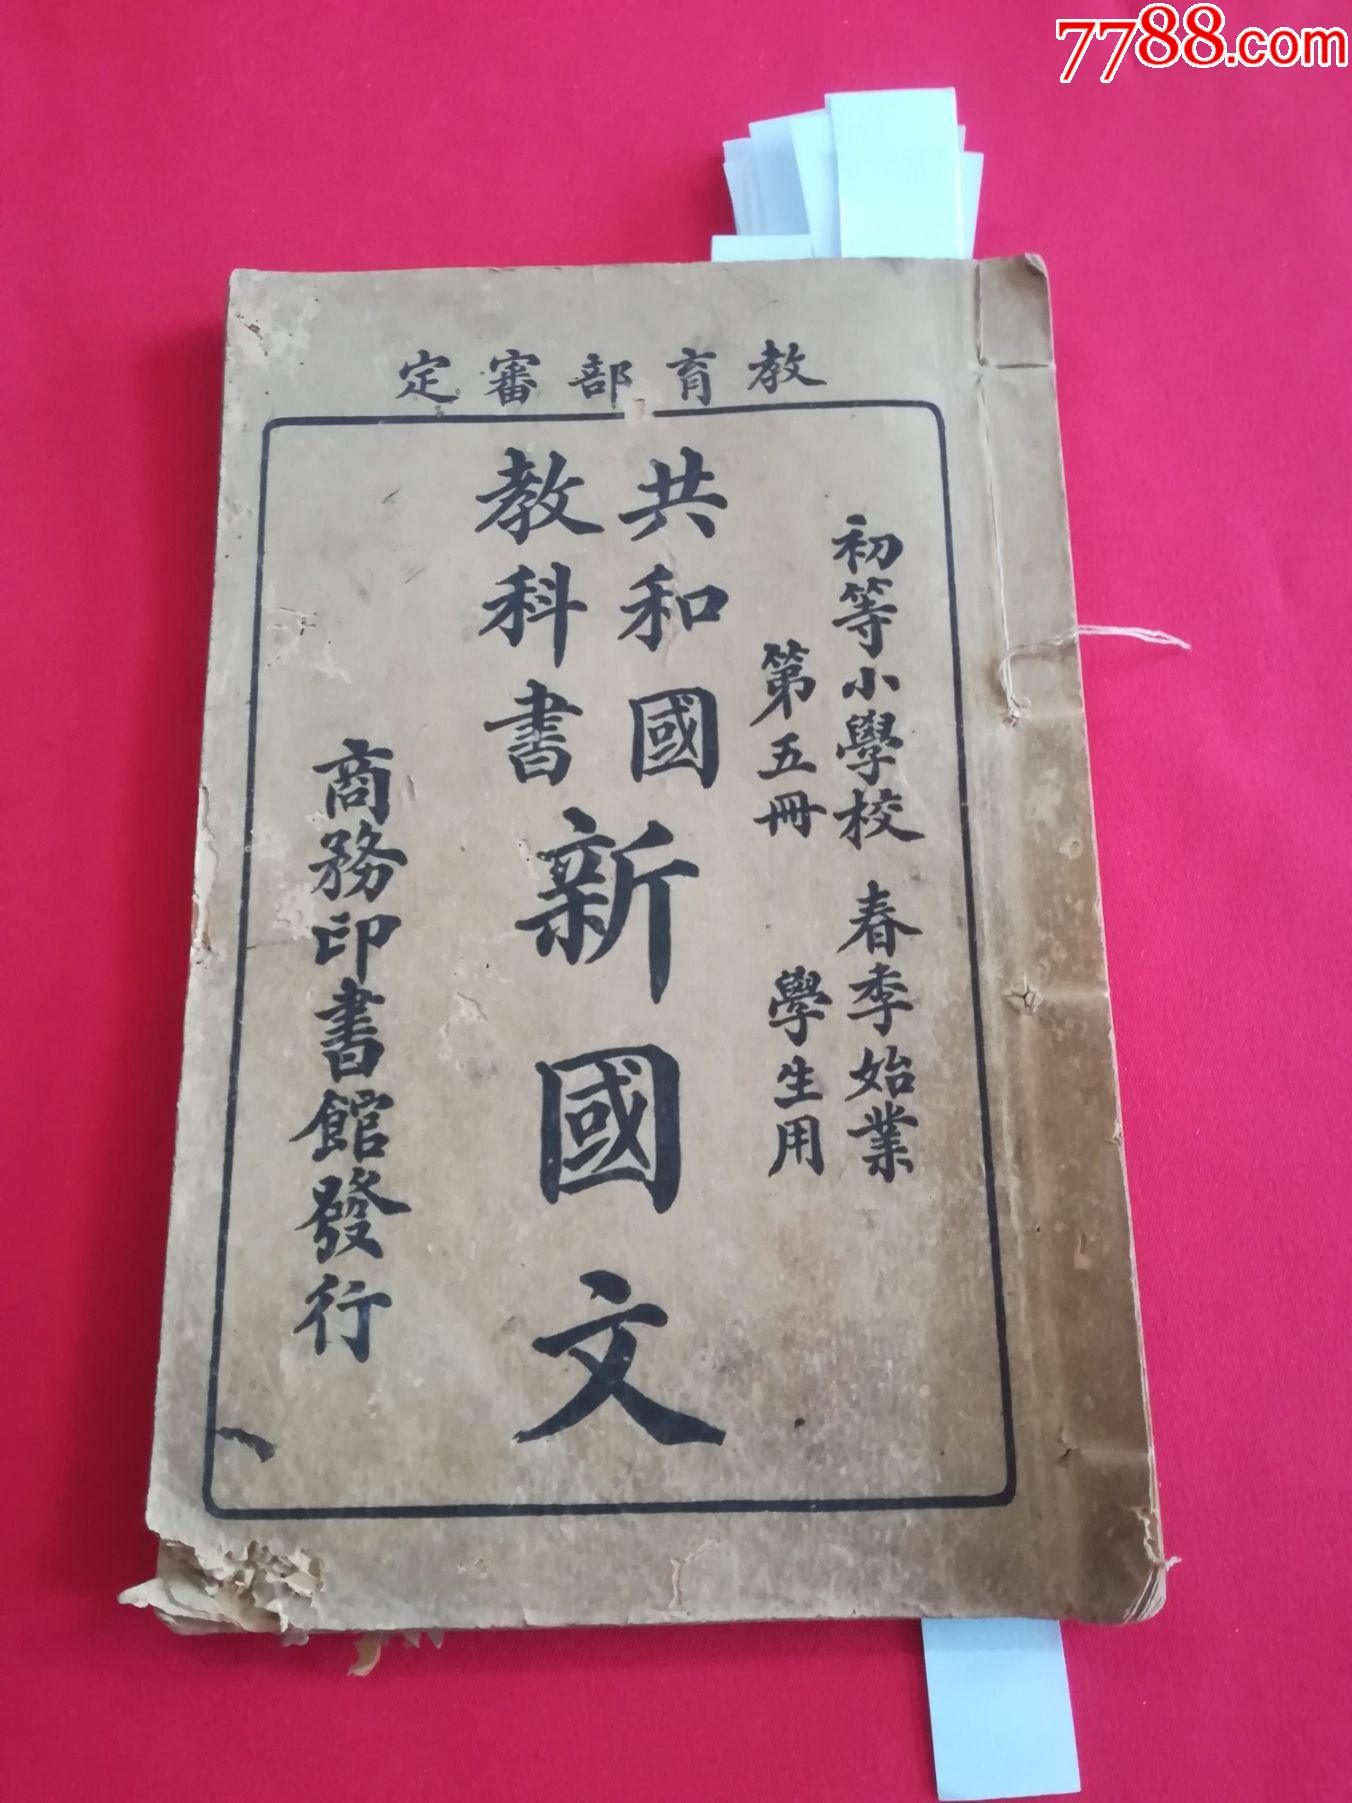 7788.com
教育部審定
初等小學校 春季始業
第五冊 學生用
共和國
教科書
新國文
商務印書館發行